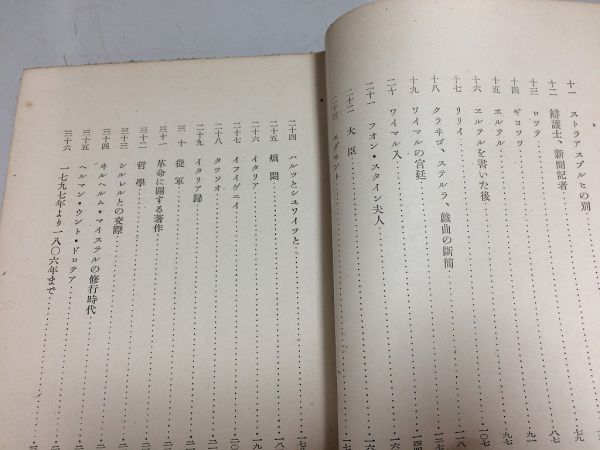 十一 ストラアスブルヒの別
十二 辯護士、新聞記者
十三 ロツテ
十四 ギヨツツ
十五 ヱルテル
十六 ヱルテルを書いた後
十七 リリイ
十八 クラネゴ、ステルラ、戯曲の斷簡
十九 ワイマルの宮廷
二十 ワイマル入
二十一 フオン・スタイン夫人
二十二 大臣
二十三 エグモント
二十四 ハルツとシユワイツと
二十五 煩悶
二十六 イタリア
二十七 イフイゲニイ
二十八 タツソオ
二十九 イタリア歸
三十 從軍
三十一 革命に關する著作
三十二 哲學
三十三 シルレルとの交際
三十四 ヰルヘルム・マイステルの修行時代
三十五 ヘルマン・ウント・ドロテア
三十六 一七九七年より一八〇六年まで